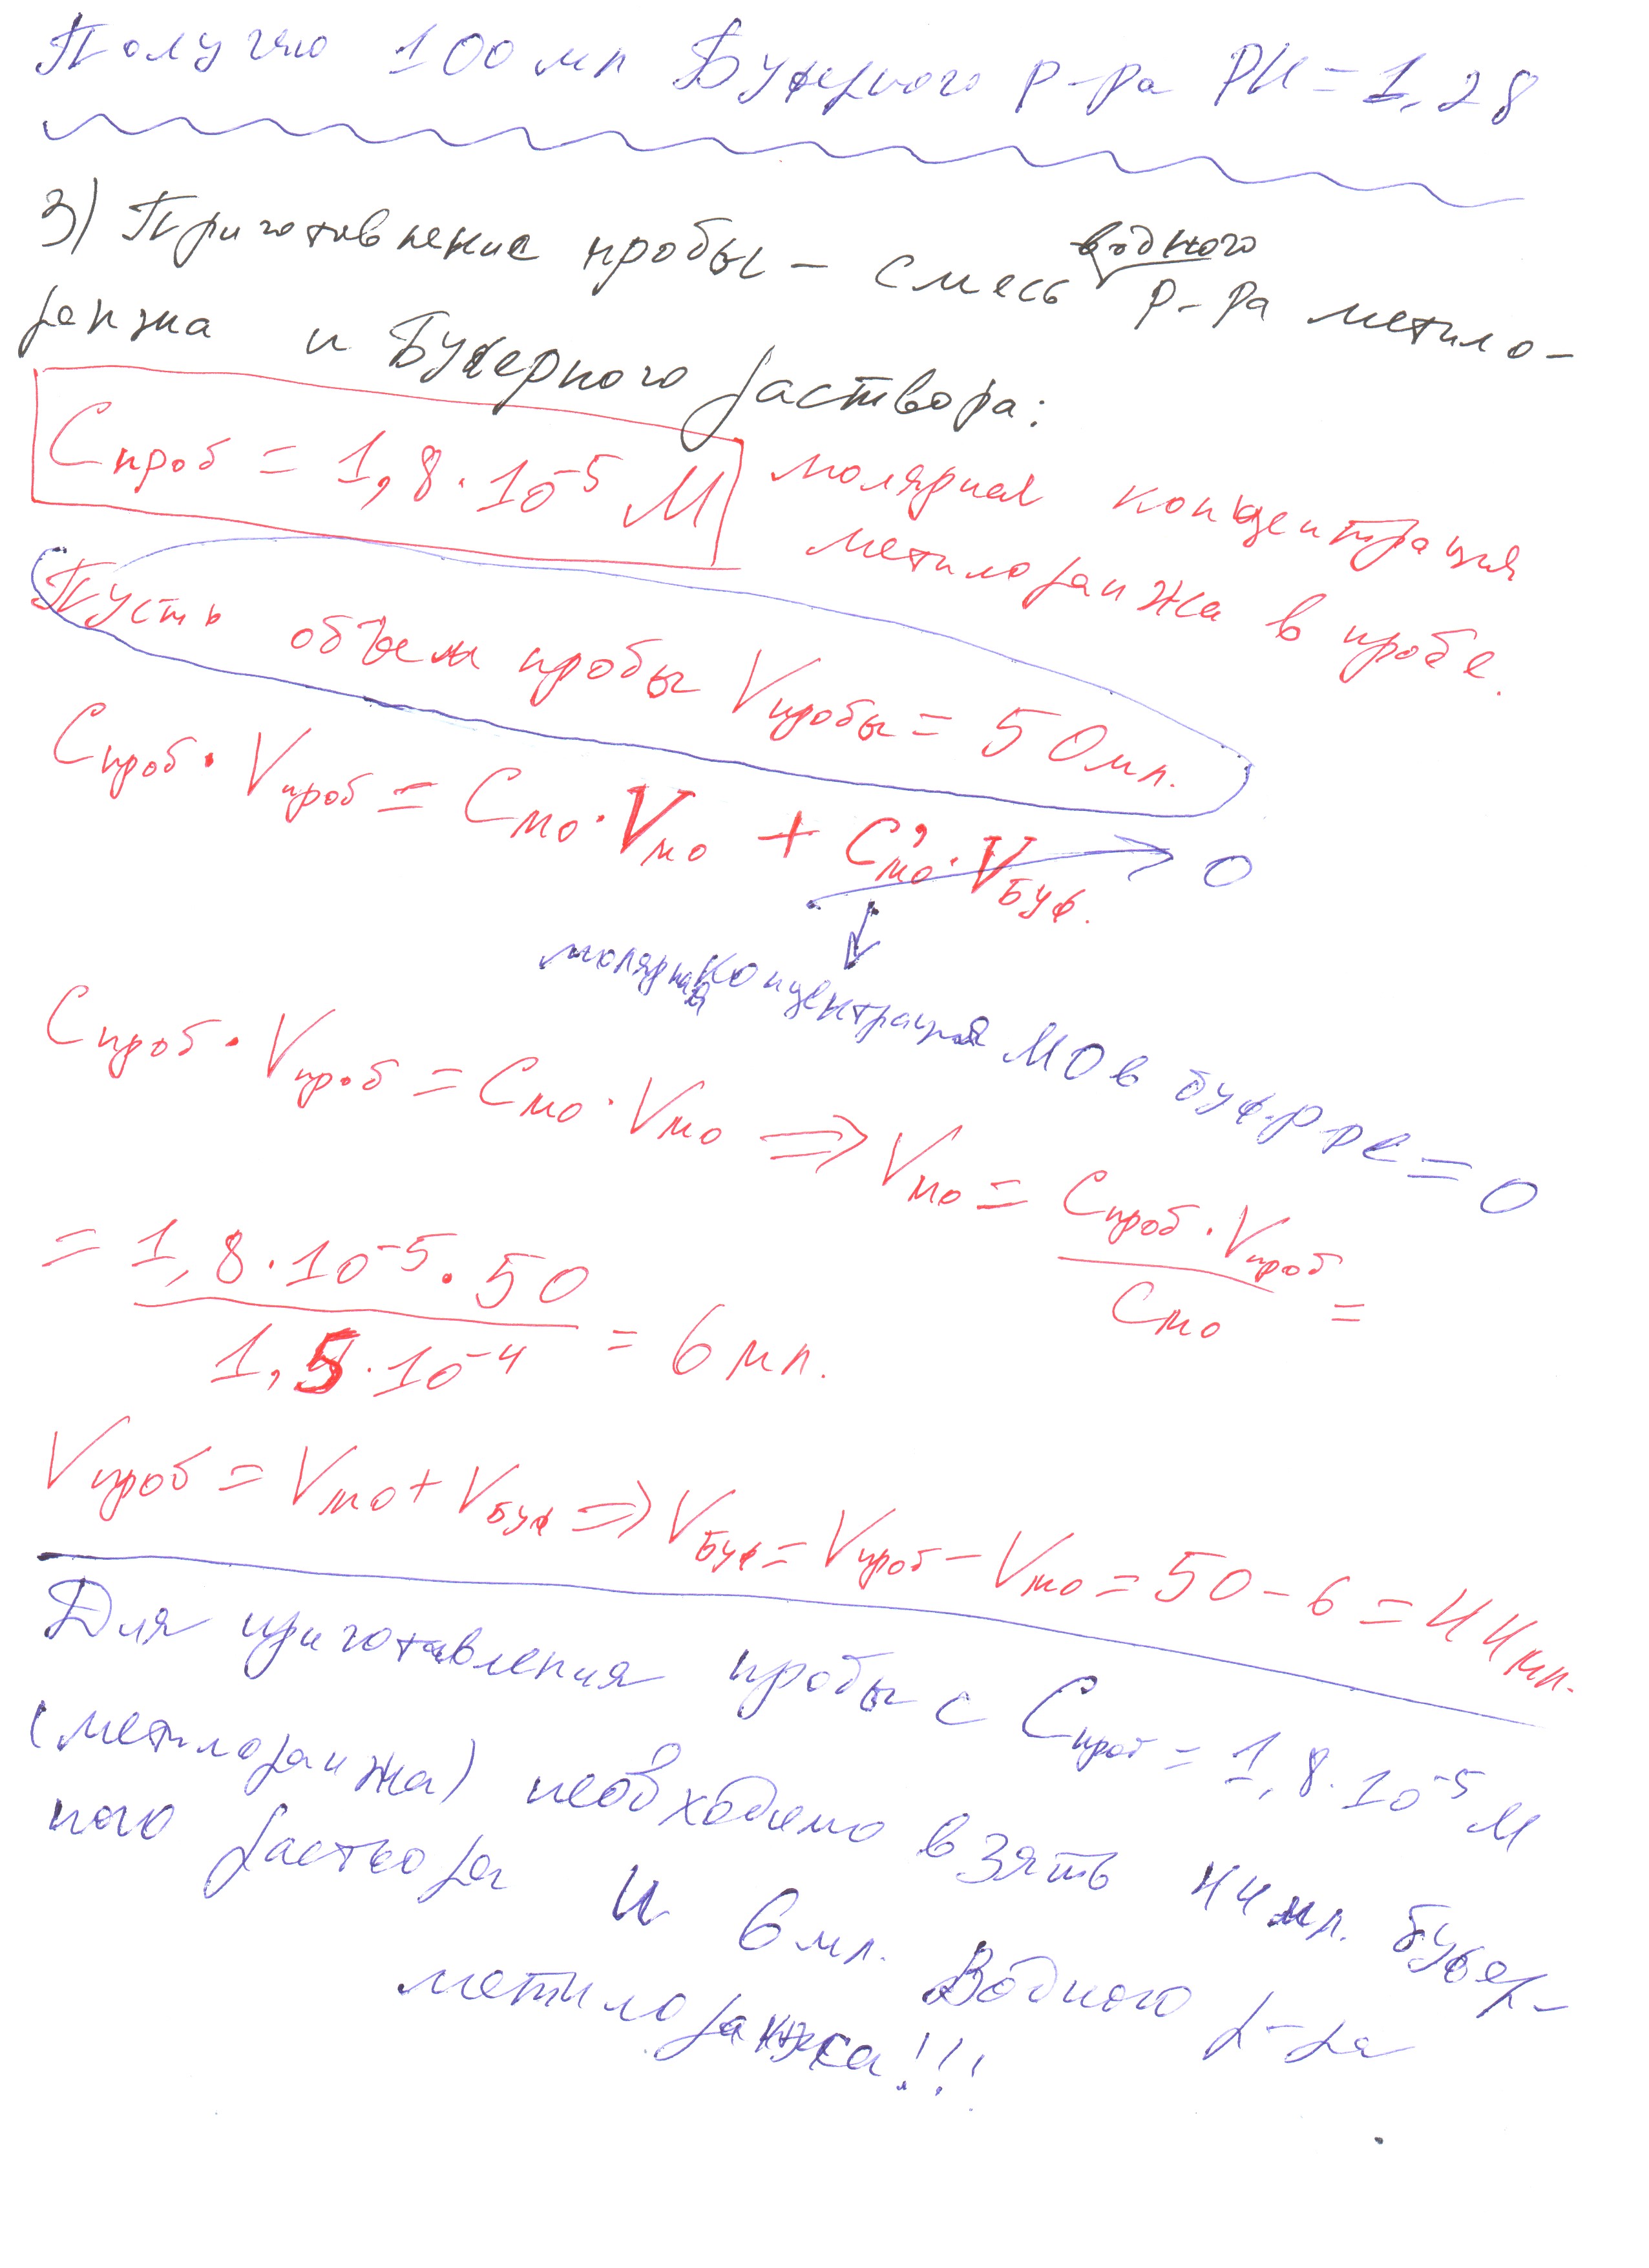 Получю 100 мл Буферного р-ра PH = 1,28
3) Приготовление пробы – смесь водного р-ра метило-
ранжа и Буферного раствора:
Cпроб = 1,8 · 10⁻⁵ М молярная концентрация
метилоранжа в пробе.
Пусть объем пробы Vпробы = 50 мл.
Cпроб · Vпроб = Cмо · Vмо + C'мо · VБуф. → 0
молярная концентрация МО в буф. р-ре = 0
Cпроб · Vпроб = Cмо · Vмо ⇒ Vмо = Cпроб · Vпроб / Cмо =
= 1,8 · 10⁻⁵ · 50 / 1,5 · 10⁻⁴ = 6 мл.
Vпроб = Vмо + VБуф ⇒ VБуф = Vпроб – Vмо = 50 – 6 = 44 мл.
Для приготавления пробы с Cпроб = 1,8 · 10⁻⁵ М
(метилоранжа) необходимо взять 44 мл. буфер-
ного раствора и 6 мл. Водного р-ра
метилоранжа!!!